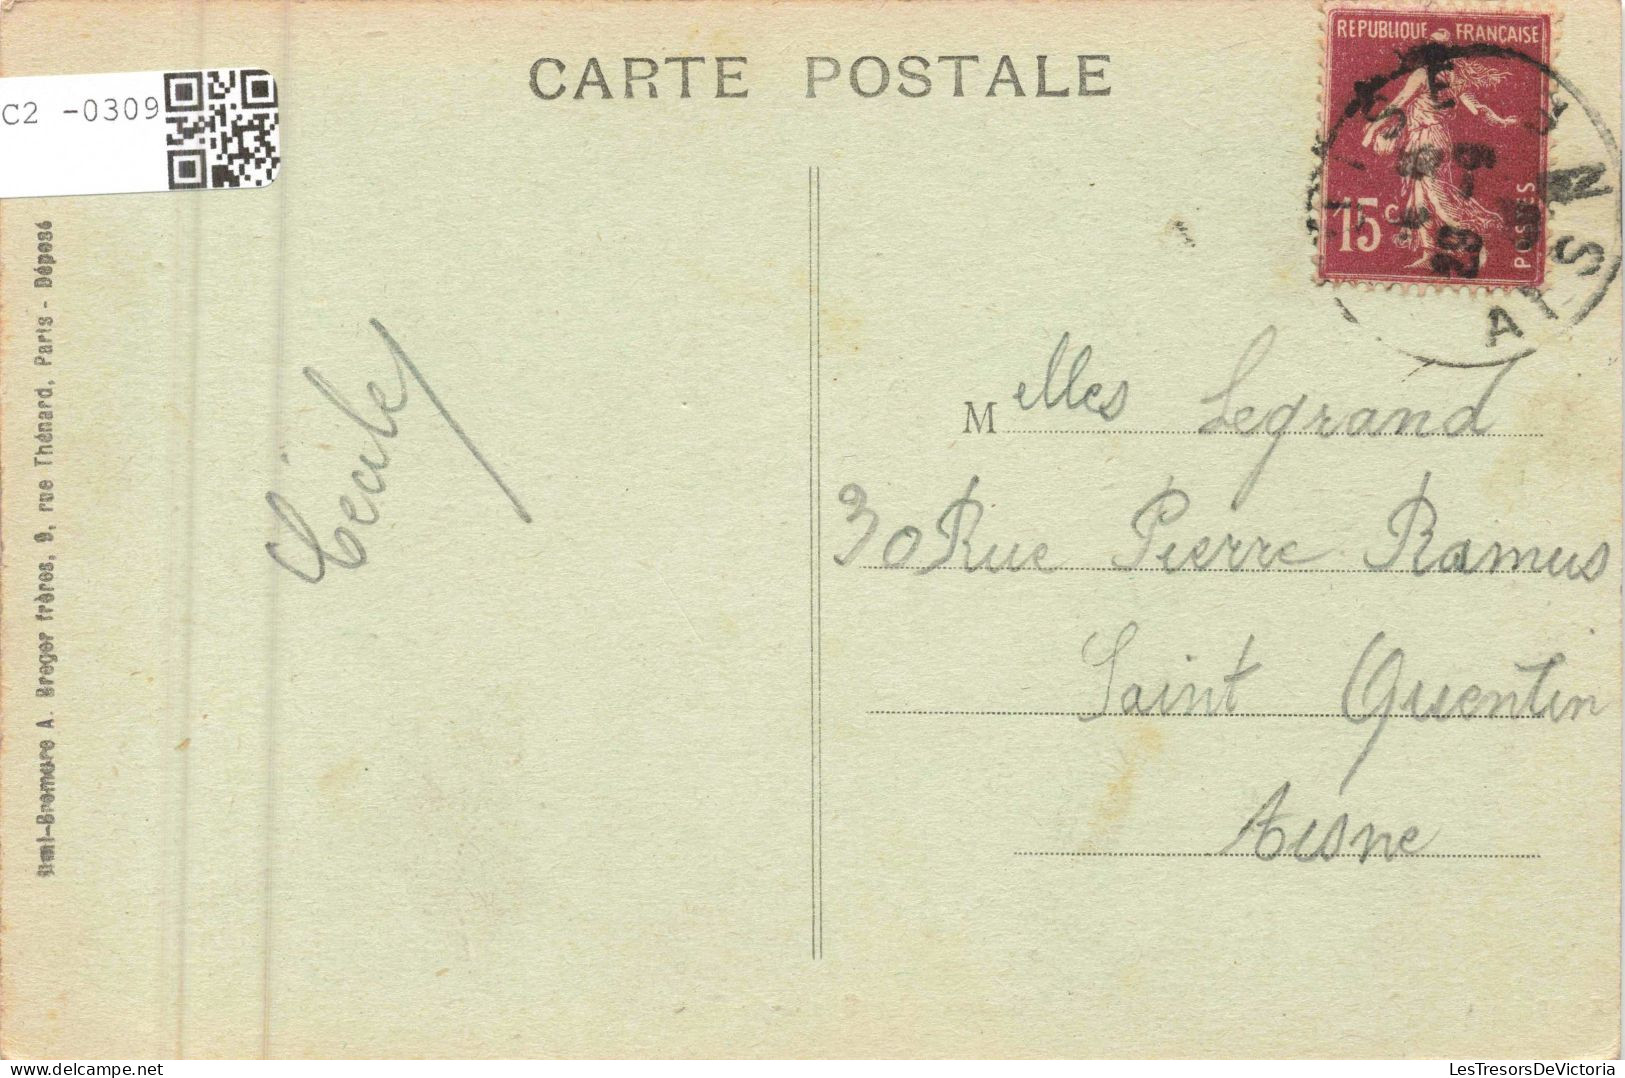 CARTE POSTALE
REPUBLIQUE FRANÇAISE
15 c
POSTES
C2 -0309
Cécile
Melles Legrand
30 Rue Pierre Ramus
Saint Quentin
Aisne
A. Breger frères, 9, rue Thénard, Paris - Déposé
LesTresorsDeVictoria